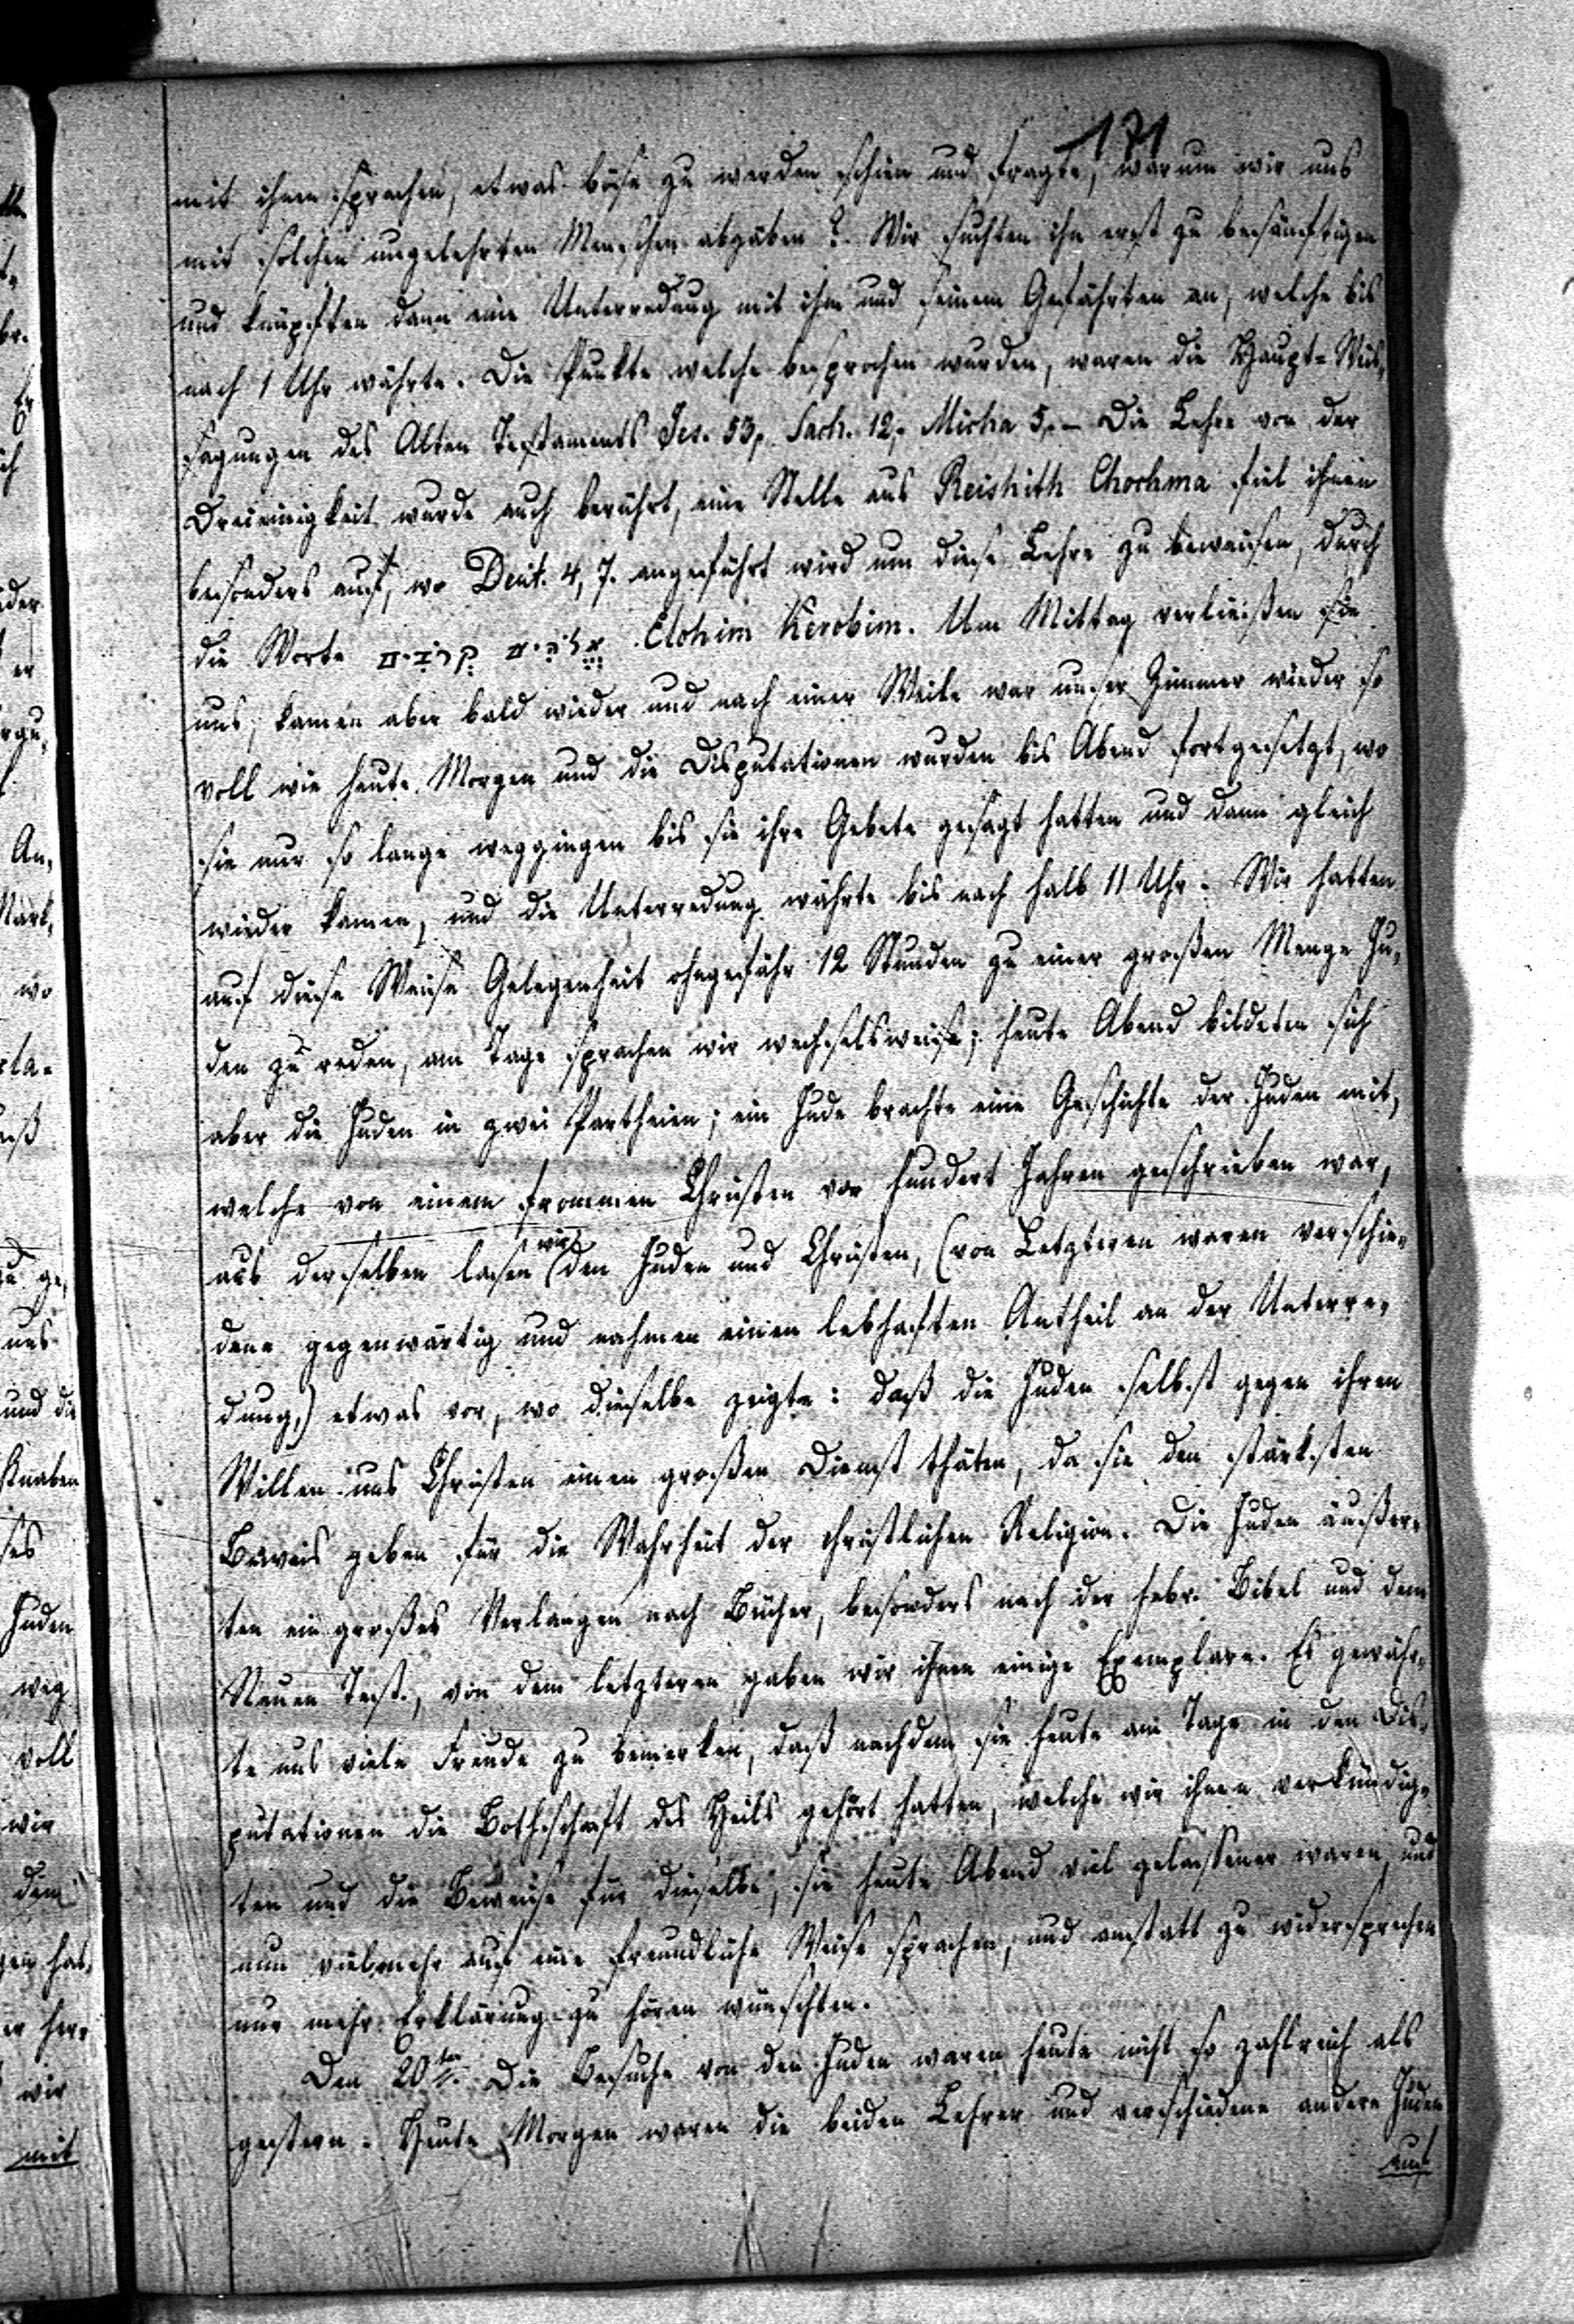 171
mit ihnen sprachen, etwas böse zu werden schien und fragte, warum wir uns
mit solchen ungelehrten Menschen abgäben? Wir suchten ihn erst zu besänftigen
und knüpften dann eine Unterredung mit ihm und seinem Gefährten an, welche bis
nach 1 Uhr währte. Die Punkte welche besprochen wurden, waren die Haupt-Weis,
sagungen des Alten Testaments Jes. 53, Sach. 12, Micha 5, – Die Lehre von der
Dreieinigkeit wurde auch berührt, eine Stelle aus Reishith Chochma fiel ihnen
besonders auf, wo Deut. 4, 7. angeführt wird um diese Lehre zu beweisen, durch
die Worte אֱלֹהִים קְרֹבִים Elohim Kerobim. Um Mittag verließen sie
uns, kamen aber bald wieder und nach einer Weile war unser Zimmer wieder so
voll wie heute Morgen und die Disputationen wurden bis Abend fortgesetzt, wo
sie nur so lange weggingen bis sie ihre Gebete gesagt hatten und dann gleich
wieder kamen, und die Unterredung währte bis nach halb 11 Uhr. Wir hatten
auf diese Weise Gelegenheit ohngefähr 12 Stunden zu einer großen Menge Ju,
den zu reden, am Tage sprachen wir wechselsweise; heute Abend bildeten sich
aber die Juden in zwei Partheien; ein Jude brachte eine Geschichte der Juden mit,
welche von einem frommen Christen vor hundert Jahren geschrieben war,
aus derselben lasen wir den Juden und Christen, (von Letzteren waren verschie,
dene gegenwärtig und nahmen einen lebhaften Antheil an der Unterre,
dung,) etwas vor, wo dieselbe zeigte: daß die Juden selbst gegen ihren
Willen uns Christen einen großen Dienst thäten, da sie den stärksten
Beweis geben für die Wahrheit der christlichen Religion. Die Juden äußer,
ten ein großes Verlangen nach Bücher, besonders nach der hebr. Bibel und dem
Neuen Test., von dem letzteren gaben wir ihnen einige Exemplare. Es gewähr,
te uns viele Freude zu bemerken, daß nachdem sie heute am Tage in den Dis,
putationen die Bothschaft des Heils gehört hatten, welche wir ihnen verkündig,
ten und die Beweise für dieselbe, sie heute Abend viel gelassener waren, und
nun vielmehr auf eine freundliche Weise sprachen, und anstatt zu widersprechen
nur mehr Erklärung zu hören wünschten.
Den 20ten. Die Besuche von den Juden waren heute nicht so zahlreich als
gestern. Heute Morgen waren die beiden Lehrer und verschiedene andere Juden
auf